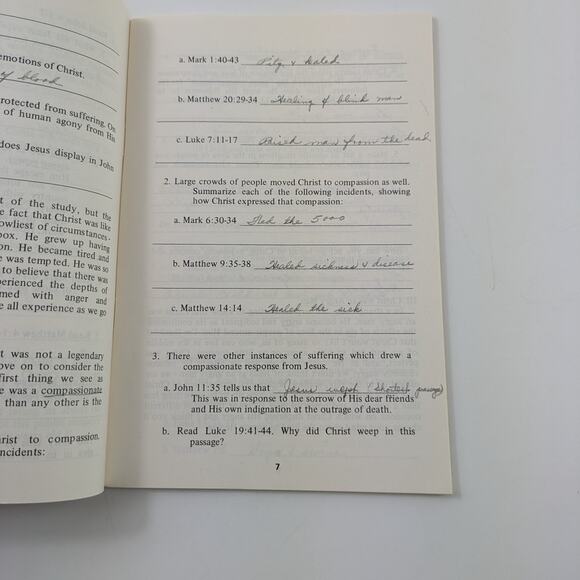 emotions of Christ.
of blood
rotected from suffering. On
of human agony from His
does Jesus display in John
t of the study, but the
e fact that Christ was like
owliest of circumstances-
box. He grew up having
on. He became tired and
e was tempted. He was so
to believe that there was
perienced the depths of
med with anger and
e all experience as we go
t was not a legendary
ove on to consider the
first thing we see as
e was a compassionate
than any other is the
rist to compassion.
ncidents:
a. Mark 1:40-43 Pity & healed
b. Matthew 20:29-34 Healing of blind man
c. Luke 7:11-17 Raised man from the dead
2. Large crowds of people moved Christ to compassion as well.
Summarize each of the following incidents, showing
how Christ expressed that compassion:
a. Mark 6:30-34 Fed the 5000
b. Matthew 9:35-38 Healed sickness & disease
c. Matthew 14:14 Healed the sick
3. There were other instances of suffering which drew a
compassionate response from Jesus.
a. John 11:35 tells us that Jesus wept (Shortest passage)
This was in response to the sorrow of His dear friends
and His own indignation at the outrage of death.
b. Read Luke 19:41-44. Why did Christ weep in this
passage?
7